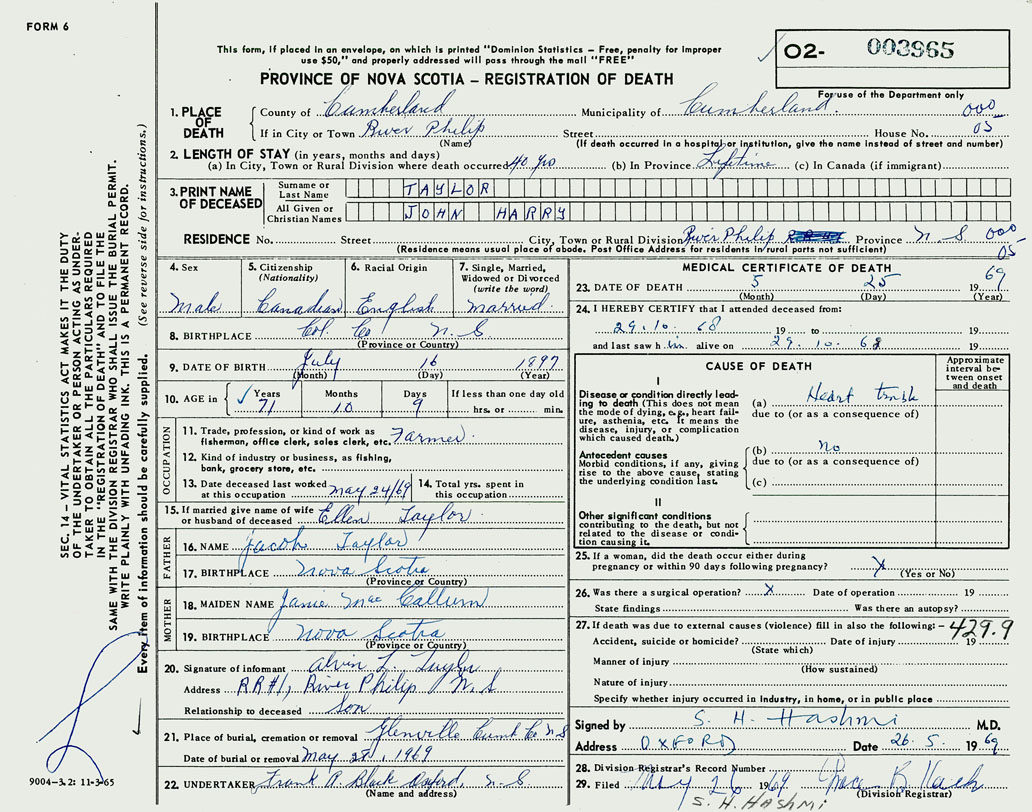 FORM 6
This form, if placed in an envelope, on which is printed "Dominion Statistics – Free, penalty for improper
use $50," and properly addressed will pass through the mail "FREE"
PROVINCE OF NOVA SCOTIA – REGISTRATION OF DEATH
02- 003965
For use of the Department only
1. PLACE OF DEATH
County of Cumberland Municipality of Cumberland. 000
If in City or Town River Philip Street House No. 05
(Name) (If death occurred in a hospital or institution, give the name instead of street and number)
2. LENGTH OF STAY (in years, months and days)
(a) In City, Town or Rural Division where death occurred 40 yrs (b) In Province Lifetime (c) In Canada (if immigrant)
3. PRINT NAME OF DECEASED
Surname or Last Name TAYLOR
All Given or Christian Names JOHN HARRY
RESIDENCE No. Street City, Town or Rural Division River Philip Province N. S 000
(Residence means usual place of abode. Post Office Address for residents in rural parts not sufficient) 05
4. Sex Male
5. Citizenship (Nationality) Canadian
6. Racial Origin English
7. Single, Married, Widowed or Divorced (write the word) married
8. BIRTHPLACE Col. Co N. S
(Province or Country)
9. DATE OF BIRTH July 16 1897
(Month) (Day) (Year)
10. AGE in Years Months Days If less than one day old
71 10 9 hrs. or min.
OCCUPATION
11. Trade, profession, or kind of work as
fisherman, office clerk, sales clerk, etc. Farmer.
12. Kind of industry or business, as fishing,
bank, grocery store, etc.
13. Date deceased last worked at this occupation May 24/69
14. Total yrs. spent in this occupation
15. If married give name of wife
or husband of deceased Ellen Taylor
FATHER
16. NAME Jacob Taylor
17. BIRTHPLACE Nova Scotia
(Province or Country)
MOTHER
18. MAIDEN NAME Janie Mac Callum
19. BIRTHPLACE Nova Scotia
(Province or Country)
20. Signature of informant Alvin L. Taylor
Address RR#1, River Philip N. S
Relationship to deceased Son
21. Place of burial, cremation or removal Glenville Cumb Co N S
Date of burial or removal May 28, 1969
22. UNDERTAKER Frank A Black Oxford, N. S
(Name and address)
MEDICAL CERTIFICATE OF DEATH
23. DATE OF DEATH 5 25 1969
(Month) (Day) (Year)
24. I HEREBY CERTIFY that I attended deceased from:
29. 10. 68 19 to 19
and last saw him alive on 29. 10. 68 19
CAUSE OF DEATH
Approximate interval between onset and death
I
Disease or condition directly leading to death (This does not mean the mode of dying, e.g., heart failure, asthenia, etc. It means the disease, injury, or complication which caused death.)
(a) Heart
due to (or as a consequence of)
Antecedent causes
Morbid conditions, if any, giving rise to the above cause, stating the underlying condition last.
(b) No
due to (or as a consequence of)
(c)
II
Other significant conditions
contributing to the death, but not related to the disease or condition causing it.
25. If a woman, did the death occur either during
pregnancy or within 90 days following pregnancy? X
(Yes or No)
26. Was there a surgical operation? X Date of operation 19
State findings Was there an autopsy?
27. If death was due to external causes (violence) fill in also the following: – 429.9
Accident, suicide or homicide? Date of injury 19
(State which)
Manner of injury
(How sustained)
Nature of injury
Specify whether injury occurred in Industry, in home, or in public place
Signed by S. H. Hashmi M.D.
Address OXFORD Date 26. 5. 1969
28. Division Registrar's Record Number
29. Filed May 26 1969
(Division Registrar)
S. H. HASHMI
SEC. 14 – VITAL STATISTICS ACT MAKES IT THE DUTY
OF THE UNDERTAKER OR PERSON ACTING AS UNDER-
TAKER TO OBTAIN ALL THE PARTICULARS REQUIRED
IN THE "REGISTRATION OF DEATH" AND TO FILE THE
SAME WITH THE DIVISION REGISTRAR WHO SHALL ISSUE THE BURIAL PERMIT.
WRITE PLAINLY WITH UNFADING INK. THIS IS A PERMANENT RECORD.
Every item of information should be carefully supplied. (See reverse side for instructions.)
9004-3.2: 11-3-65